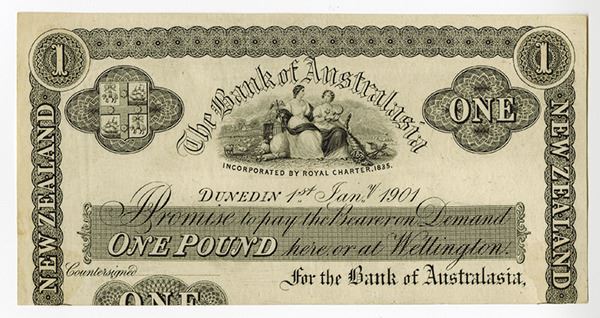 1
1
The Bank of Australasia
ONE
INCORPORATED BY ROYAL CHARTER, 1835.
NEW ZEALAND
NEW ZEALAND
DUNEDIN 1st Jany 1901
I Promise to pay the Bearer on Demand
ONE POUND here or at Wellington.
Countersigned
For the Bank of Australasia,
ONE